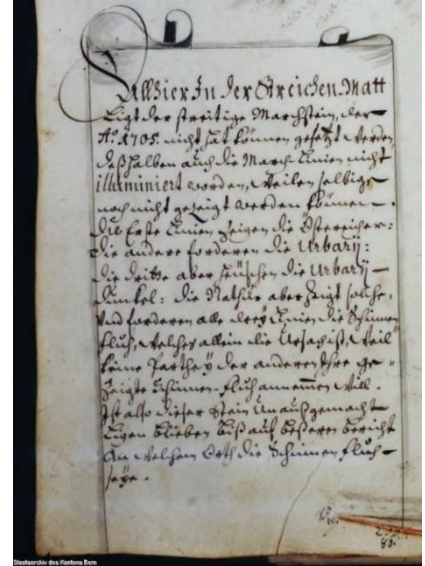 Allhier In der Streichen-Matt
Ligt der streitige Marchstein, der
Aº. 1705. nicht hat können gesetzt werden
deßhalben auch die March-Linien nicht
illuminiert worden, Weilen selbige
noch nicht gezeigt werden können.
Die erste Linien zeigen die Östereicher:
die andere forderen die Urbary:
die dritte aber heüschen die Urbary-
Dunkel: die Nathür aber zeigt solche,
Und forderen alle dreÿ Linien die Schinnen
Fluh, welches allein die Ursach ist, Weil
keine Partheÿ der anderen Ihre ge-
zeigte Schinnen-Fluh annemmen will.
Ist also dieser Stein Unaußgemacht
Ligen blieben biß auf besseren bericht
An welchem Orth die Schinnen Fluh
seÿe.
Staatsarchiv des Kantons Bern